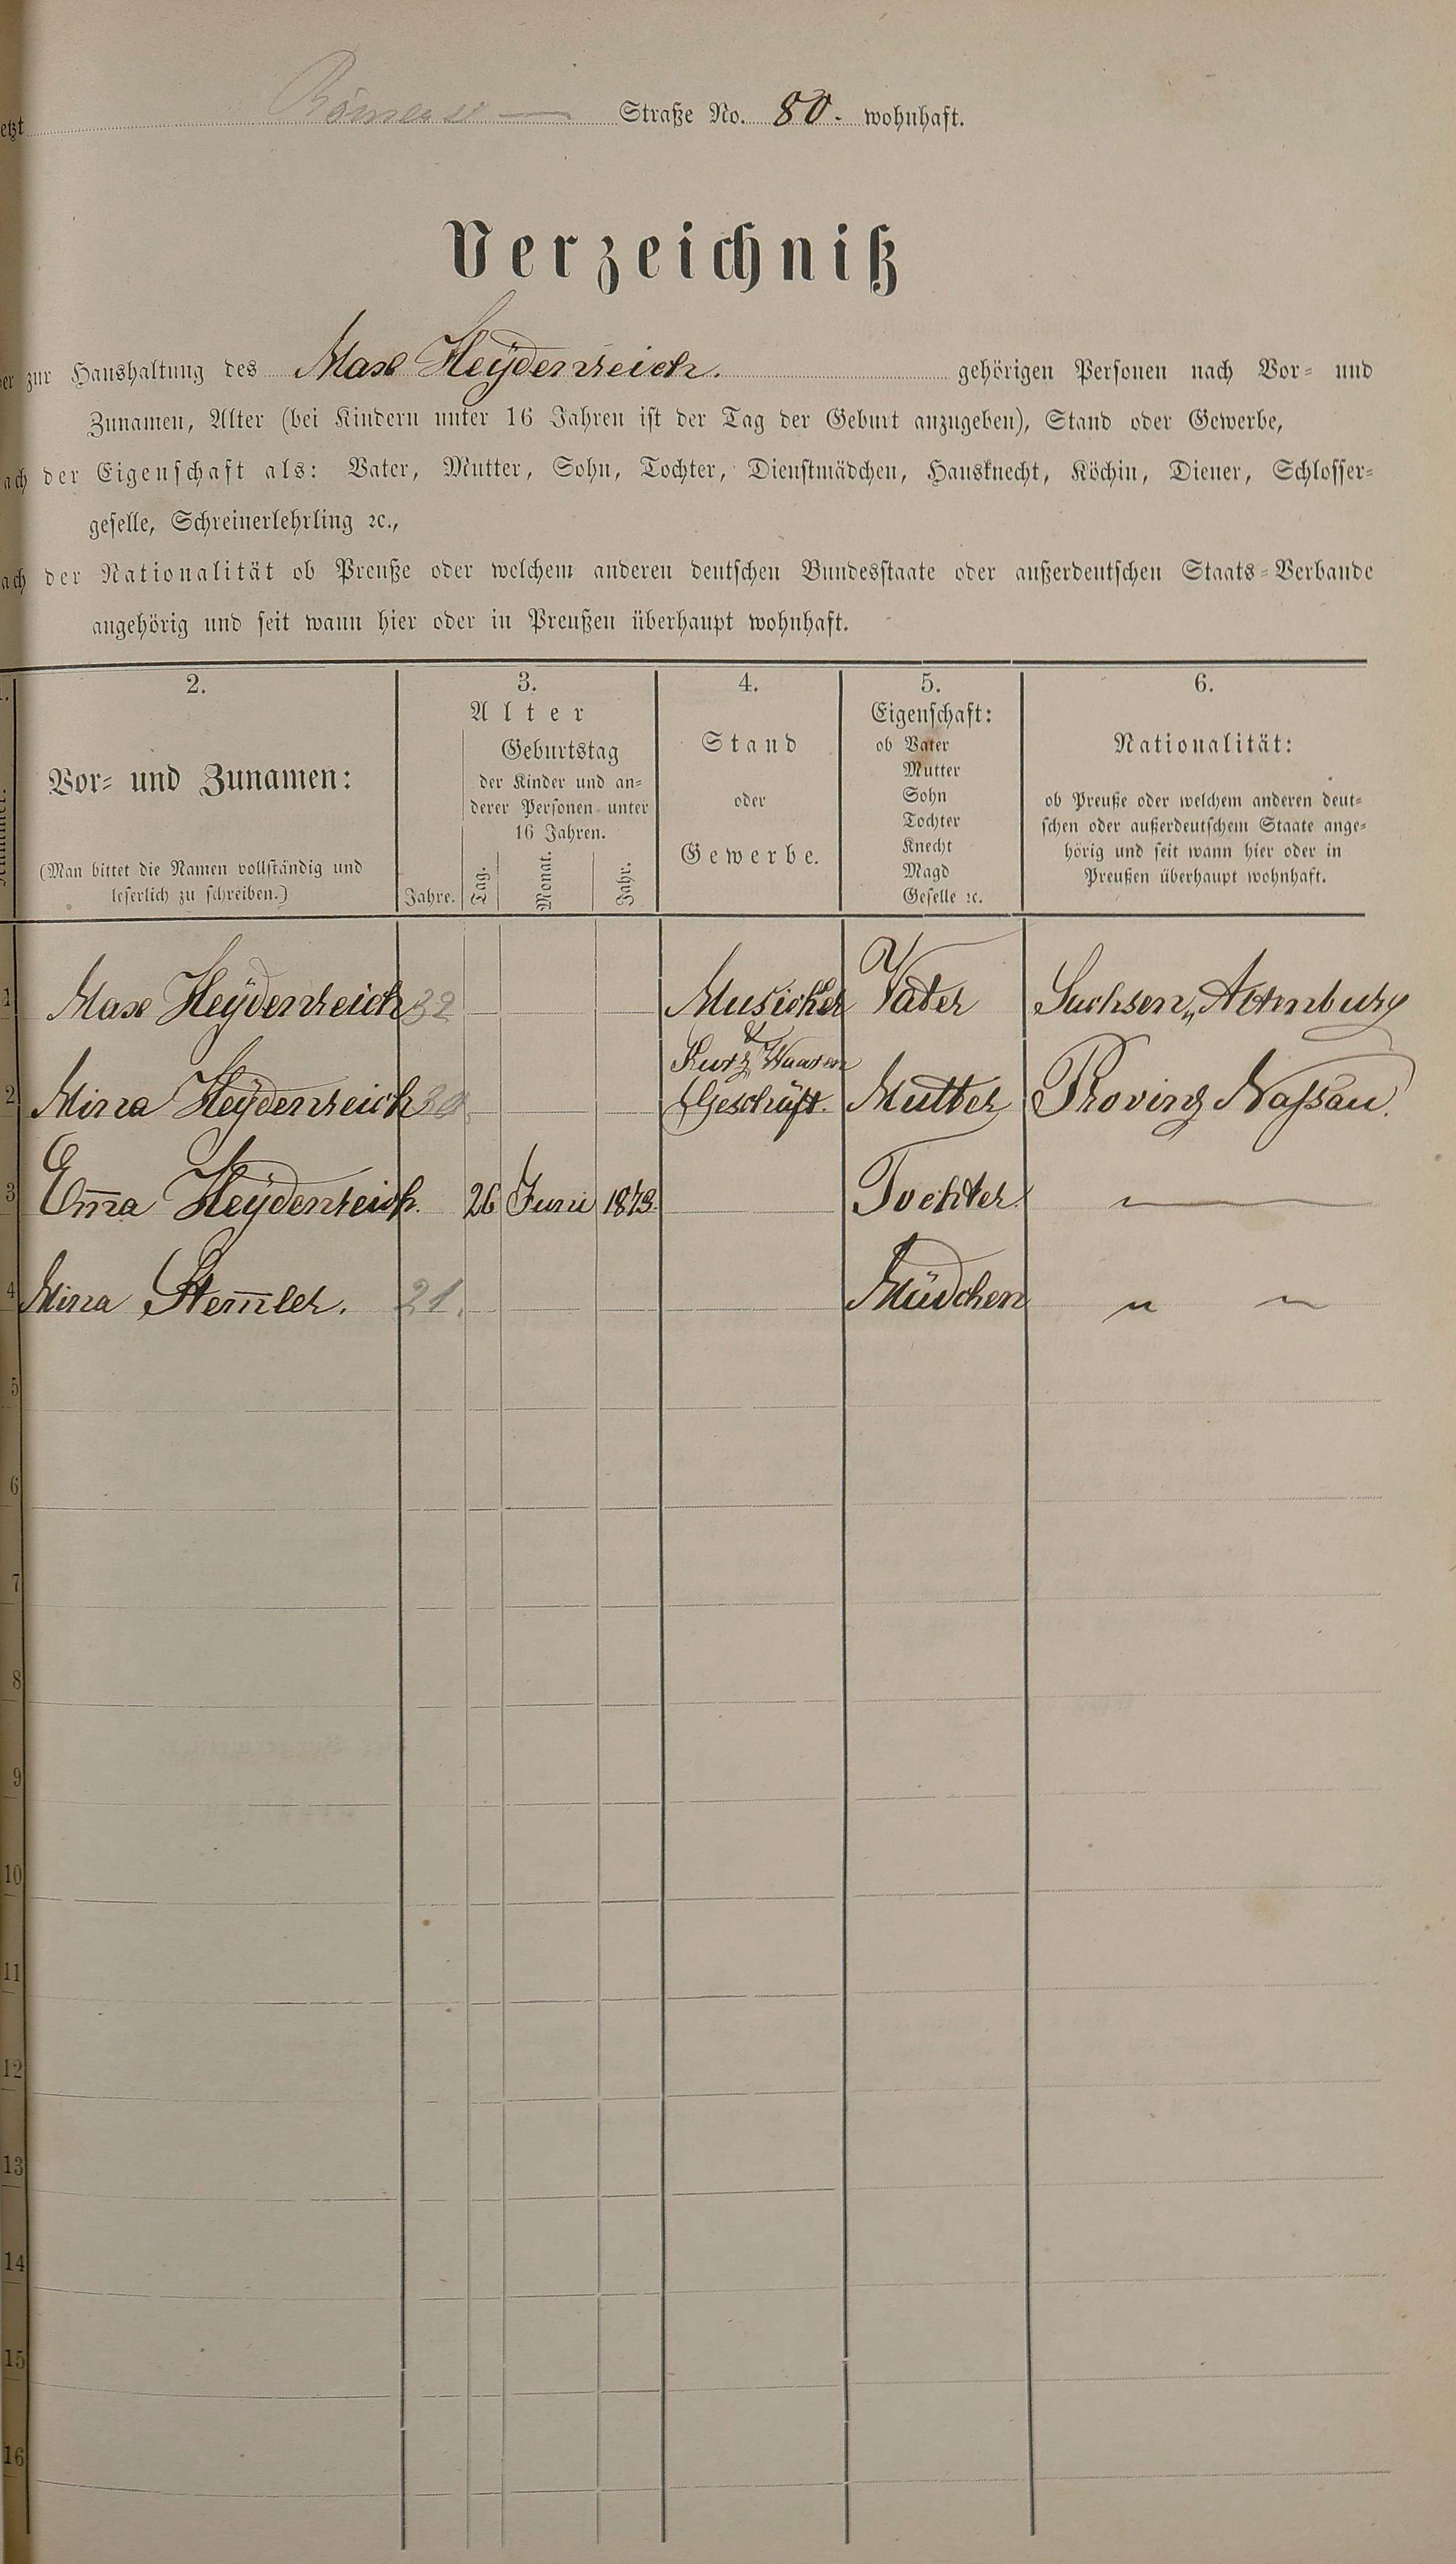 etzt Römer Straße No. 80. wohnhaft.
Verzeichniß
der zur Haushaltung des Max Heÿdenreich. gehörigen Personen nach Vor- und
Zunamen, Alter (bei Kindern unter 16 Jahren ist der Tag der Geburt anzugeben), Stand oder Gewerbe,
ach der Eigenschaft als: Vater, Mutter, Sohn, Tochter, Dienstmädchen, Hausknecht, Köchin, Diener, Schlosser-
geselle, Schreinerlehrling ꝛc.,
ach der Nationalität ob Preuße oder welchem anderen deutschen Bundesstaate oder außerdeutschen Staats-Verbande
angehörig und seit wann hier oder in Preußen überhaupt wohnhaft.
2. 3. 4. 5. 6.
Alter
Vor- und Zunamen:
(Man bittet die Namen vollständig und
leserlich zu schreiben.)
Jahre.
Geburtstag
der Kinder und an-
derer Personen unter
16 Jahren.
Tag. Monat. Jahr.
Stand
oder
Gewerbe.
Eigenschaft:
ob Vater
Mutter
Sohn
Tochter
Knecht
Magd
Geselle ꝛc.
Nationalität:
ob Preuße oder welchem anderen deut-
schen oder außerdeutschem Staate ange-
hörig und seit wann hier oder in
Preußen überhaupt wohnhaft.
1 Max Heÿdenreich 32 Musicker Vater Sachsen, Altenburg
& Kurz Waaren
2 Mina Heÿdenreich 30 Geschäft. Mutter Provinz Nassau.
3 Em̄a Heÿdenreich. 26 Juni 1873. Tochter. —
4 Mina Stem̄ler. 21. Mädchen " "
5
6
7
8
9
10
11
12
13
14
15
16